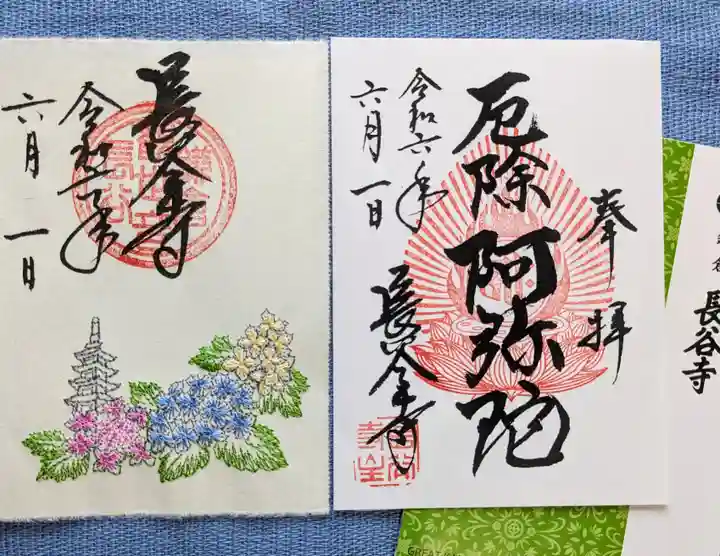 長谷寺
令和六年
六月一日
奉拝
厄除阿弥陀
長谷寺
令和六年
六月一日
長谷寺
GREAT